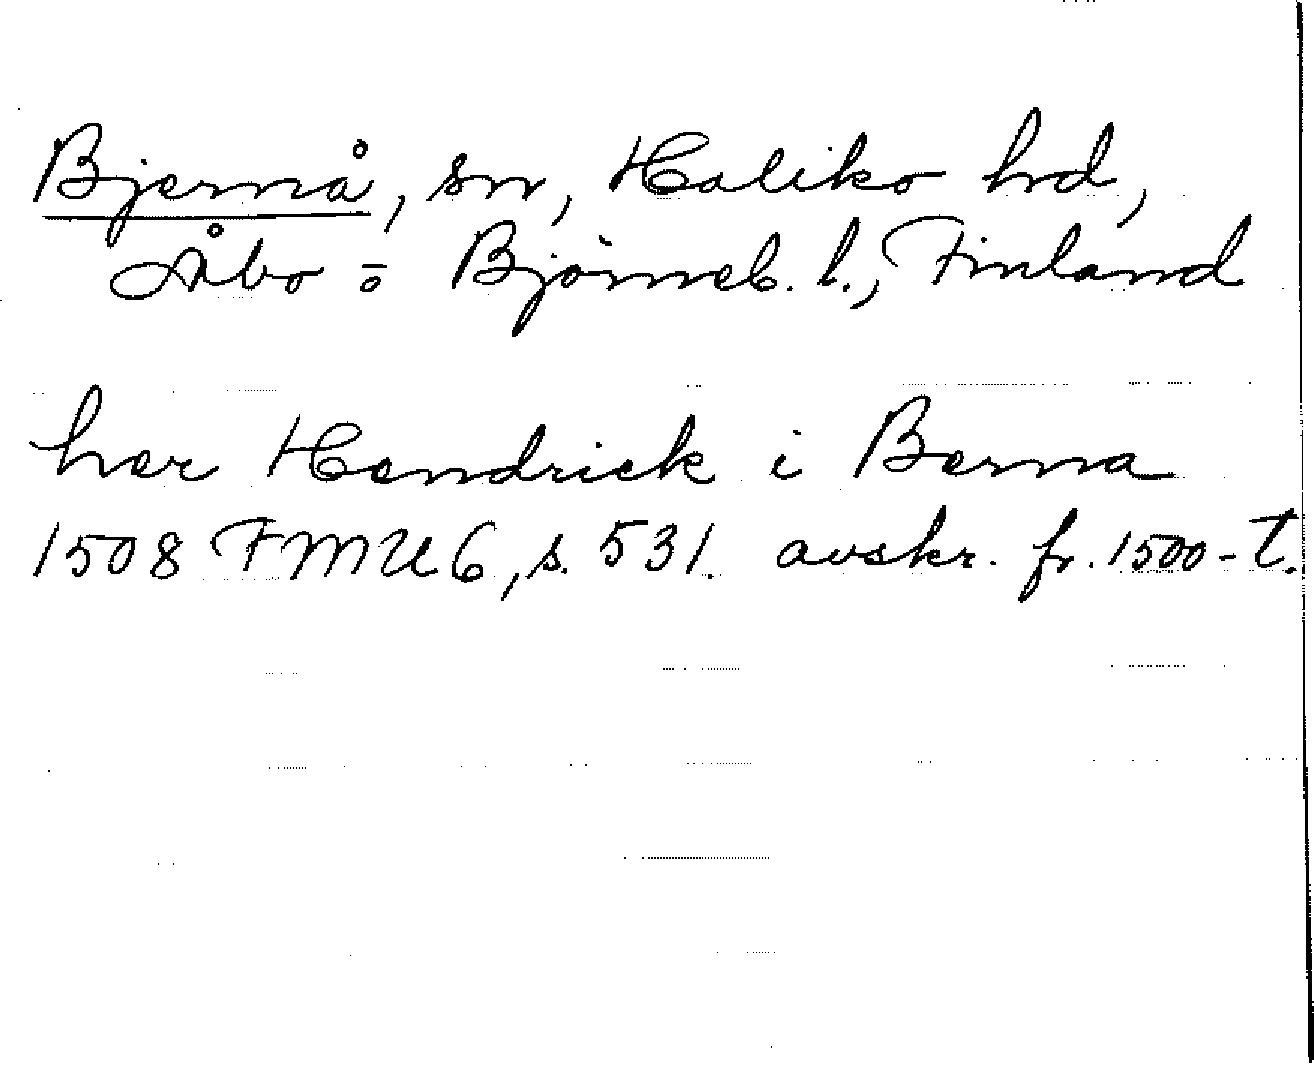 Bjernå, sn, Haliko hd,
Åbo o Björneb. l., Finland
her Hendrick i Berna
1508 FMU 6, s. 531. avskr. fr. 1500-t.